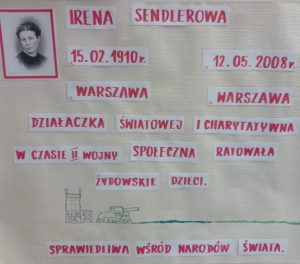 IRENA SENDLEROWA
15.02.1910r. 12.05.2008r.
WARSZAWA WARSZAWA
DZIAŁACZKA ŚWIATOWEJ I CHARYTATYWNA
W CZASIE II WOJNY SPOŁECZNA RATOWAŁA
ŻYDOWSKIE DZIECI.
SPRAWIEDLIWA WŚRÓD NARODÓW ŚWIATA.